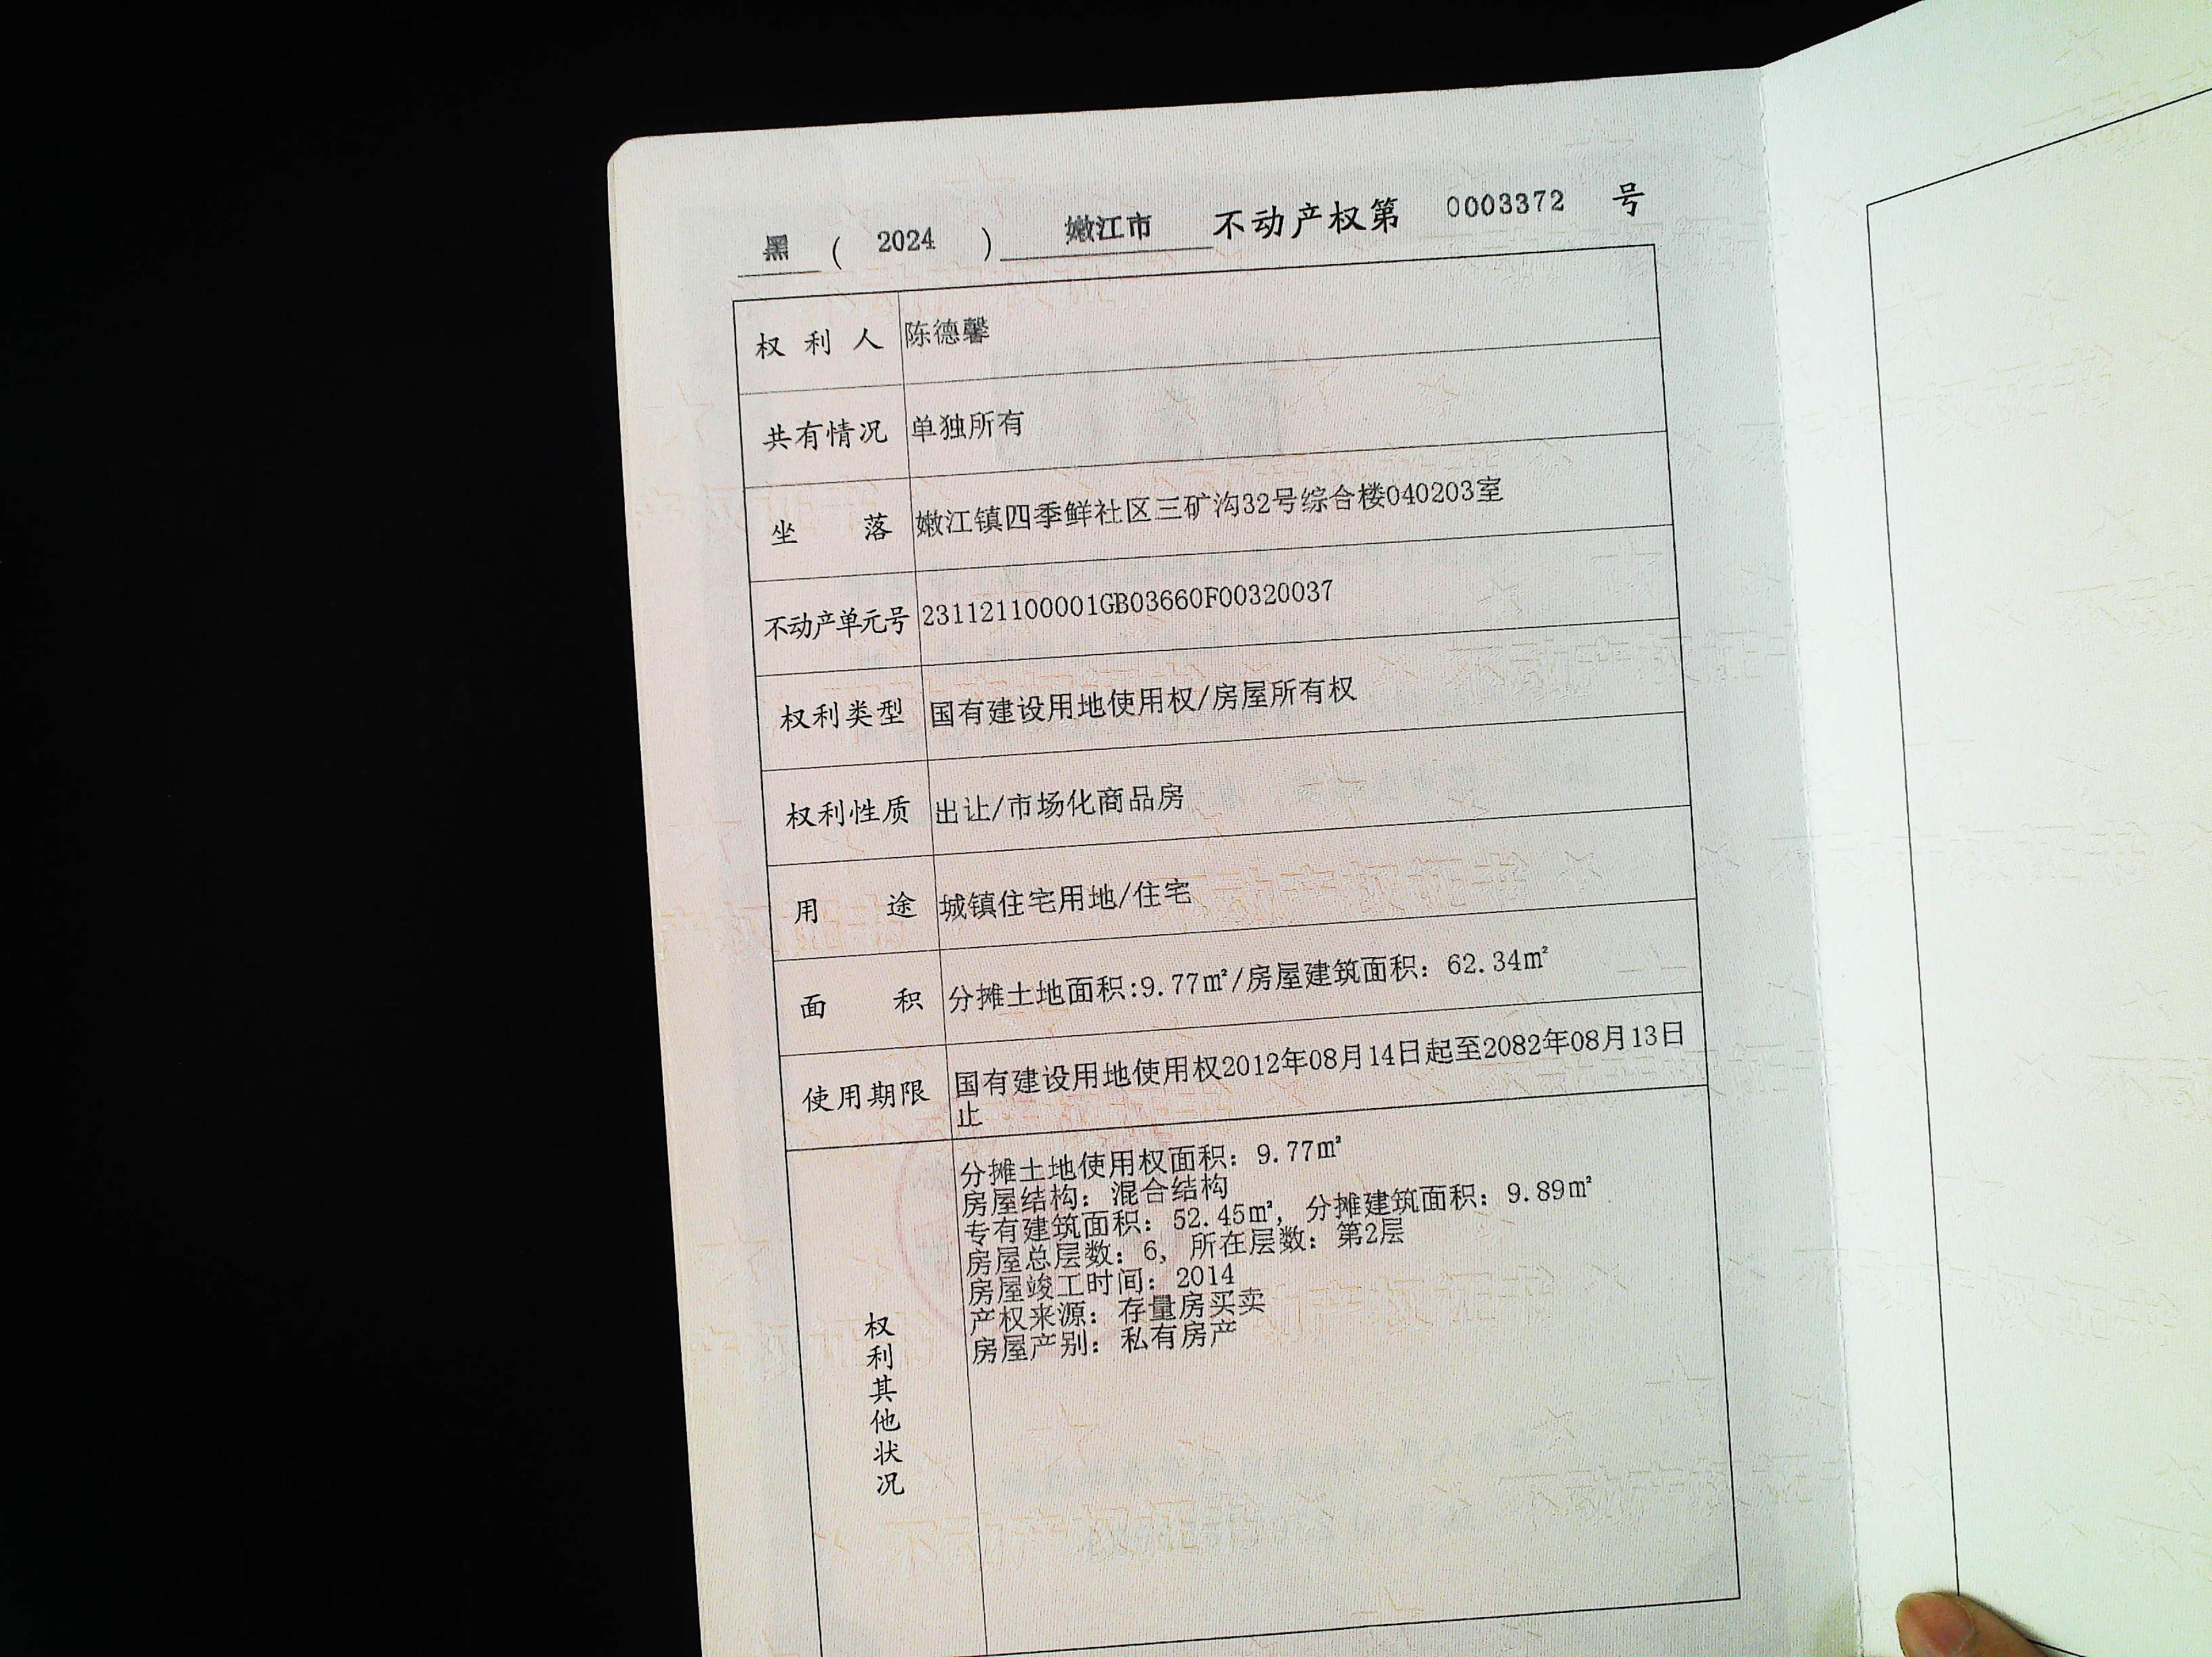 黑 ( 2024 ) 嫩江市 不动产权第 0003372 号
权利人 陈德馨
共有情况 单独所有
坐落 嫩江镇四季鲜社区三矿沟32号综合楼040203室
不动产单元号 231121100001GB03660F00320037
权利类型 国有建设用地使用权/房屋所有权
权利性质 出让/市场化商品房
用途 城镇住宅用地/住宅
面积 分摊土地面积:9.77㎡/房屋建筑面积：62.34㎡
使用期限 国有建设用地使用权2012年08月14日起至2082年08月13日
止
权利其他状况
分摊土地使用权面积：9.77㎡
房屋结构：混合结构
专有建筑面积：52.45㎡，分摊建筑面积：9.89㎡
房屋总层数：6，所在层数：第2层
房屋竣工时间：2014
产权来源：存量房买卖
房屋产别：私有房产